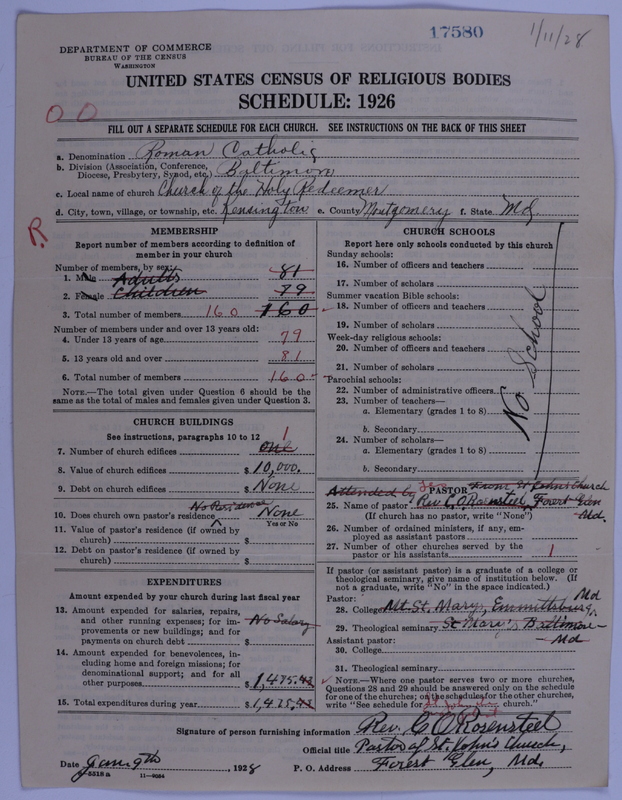 17580
1/11/28
DEPARTMENT OF COMMERCE
BUREAU OF THE CENSUS
WASHINGTON
UNITED STATES CENSUS OF RELIGIOUS BODIES
SCHEDULE: 1926
O O
FILL OUT A SEPARATE SCHEDULE FOR EACH CHURCH. SEE INSTRUCTIONS ON THE BACK OF THIS SHEET
a. Denomination Roman Catholic
b. Division (Association, Conference, Diocese, Presbytery, Synod, etc.) Baltimore
c. Local name of church Church of the Holy Redeemer
d. City, town, village, or township, etc. Kensington e. County Montgomery f. State Md.
R
MEMBERSHIP
Report number of members according to definition of
member in your church
Number of members, by sex:
1. Male Adults 81
2. Female Children 79
3. Total number of members 160 160
Number of members under and over 13 years old:
4. Under 13 years of age 79
5. 13 years old and over 81
6. Total number of members 160
NOTE.—The total given under Question 6 should be
same as the total of males and females given under Question 3.
CHURCH BUILDINGS
See instructions, paragraphs 10 to 12
7. Number of church edifices one 1
8. Value of church edifices $ 10,000.
9. Debt on church edifices $ None
No Residence
10. Does church own pastor's residence None
Yes or No
11. Value of pastor's residence (if owned by
church) $
12. Debt on pastor's residence (if owned by
church) $
EXPENDITURES
Amount expended by your church during last fiscal year
13. Amount expended for salaries, repairs,
and other running expenses; for im-
provements or new buildings; and for
payments on church debt $ No Salary
14. Amount expended for benevolences, in-
cluding home and foreign missions; for
denominational support; and for all
other purposes $ 1,475.43
15. Total expenditures during year $ 1,475.43
CHURCH SCHOOLS
Report here only schools conducted by this church
Sunday schools:
16. Number of officers and teachers
17. Number of scholars
Summer vacation Bible schools:
18. Number of officers and teachers
19. Number of scholars
Week-day religious schools:
20. Number of officers and teachers
21. Number of scholars
Parochial schools:
22. Number of administrative officers
23. Number of teachers—
a. Elementary (grades 1 to 8)
b. Secondary
24. Number of scholars—
a. Elementary (grades 1 to 8)
b. Secondary
No School
Attended by PASTOR From St John's Church
25. Name of pastor Rev. C. O. Rosensteel, Forest Glen
(If church has no pastor, write "None") Md.
26. Number of ordained ministers, if any, em-
ployed as assistant pastors
27. Number of other churches served by the
pastor or his assistants 1
If pastor (or assistant pastor) is a graduate of a college or
theological seminary, give name of institution below. (If
not a graduate, write "No" in the space indicated.)
Pastor: Md
28. College Mt. St. Mary, Emmittsburg,
29. Theological seminary St Mary's, Baltimore
Md
Assistant pastor:
30. College
31. Theological seminary
NOTE.—Where one pastor serves two or more churches,
Questions 28 and 29 should be answered only on the schedule
for one of the churches; on the schedules for the other churches,
write "See schedule for church."
Signature of person furnishing information Rev. C O Rosensteel
Official title Pastor of St. John's Church,
Date Jan. 9th, 1928 P. O. Address Forest Glen, Md.
8518 a 11—9564